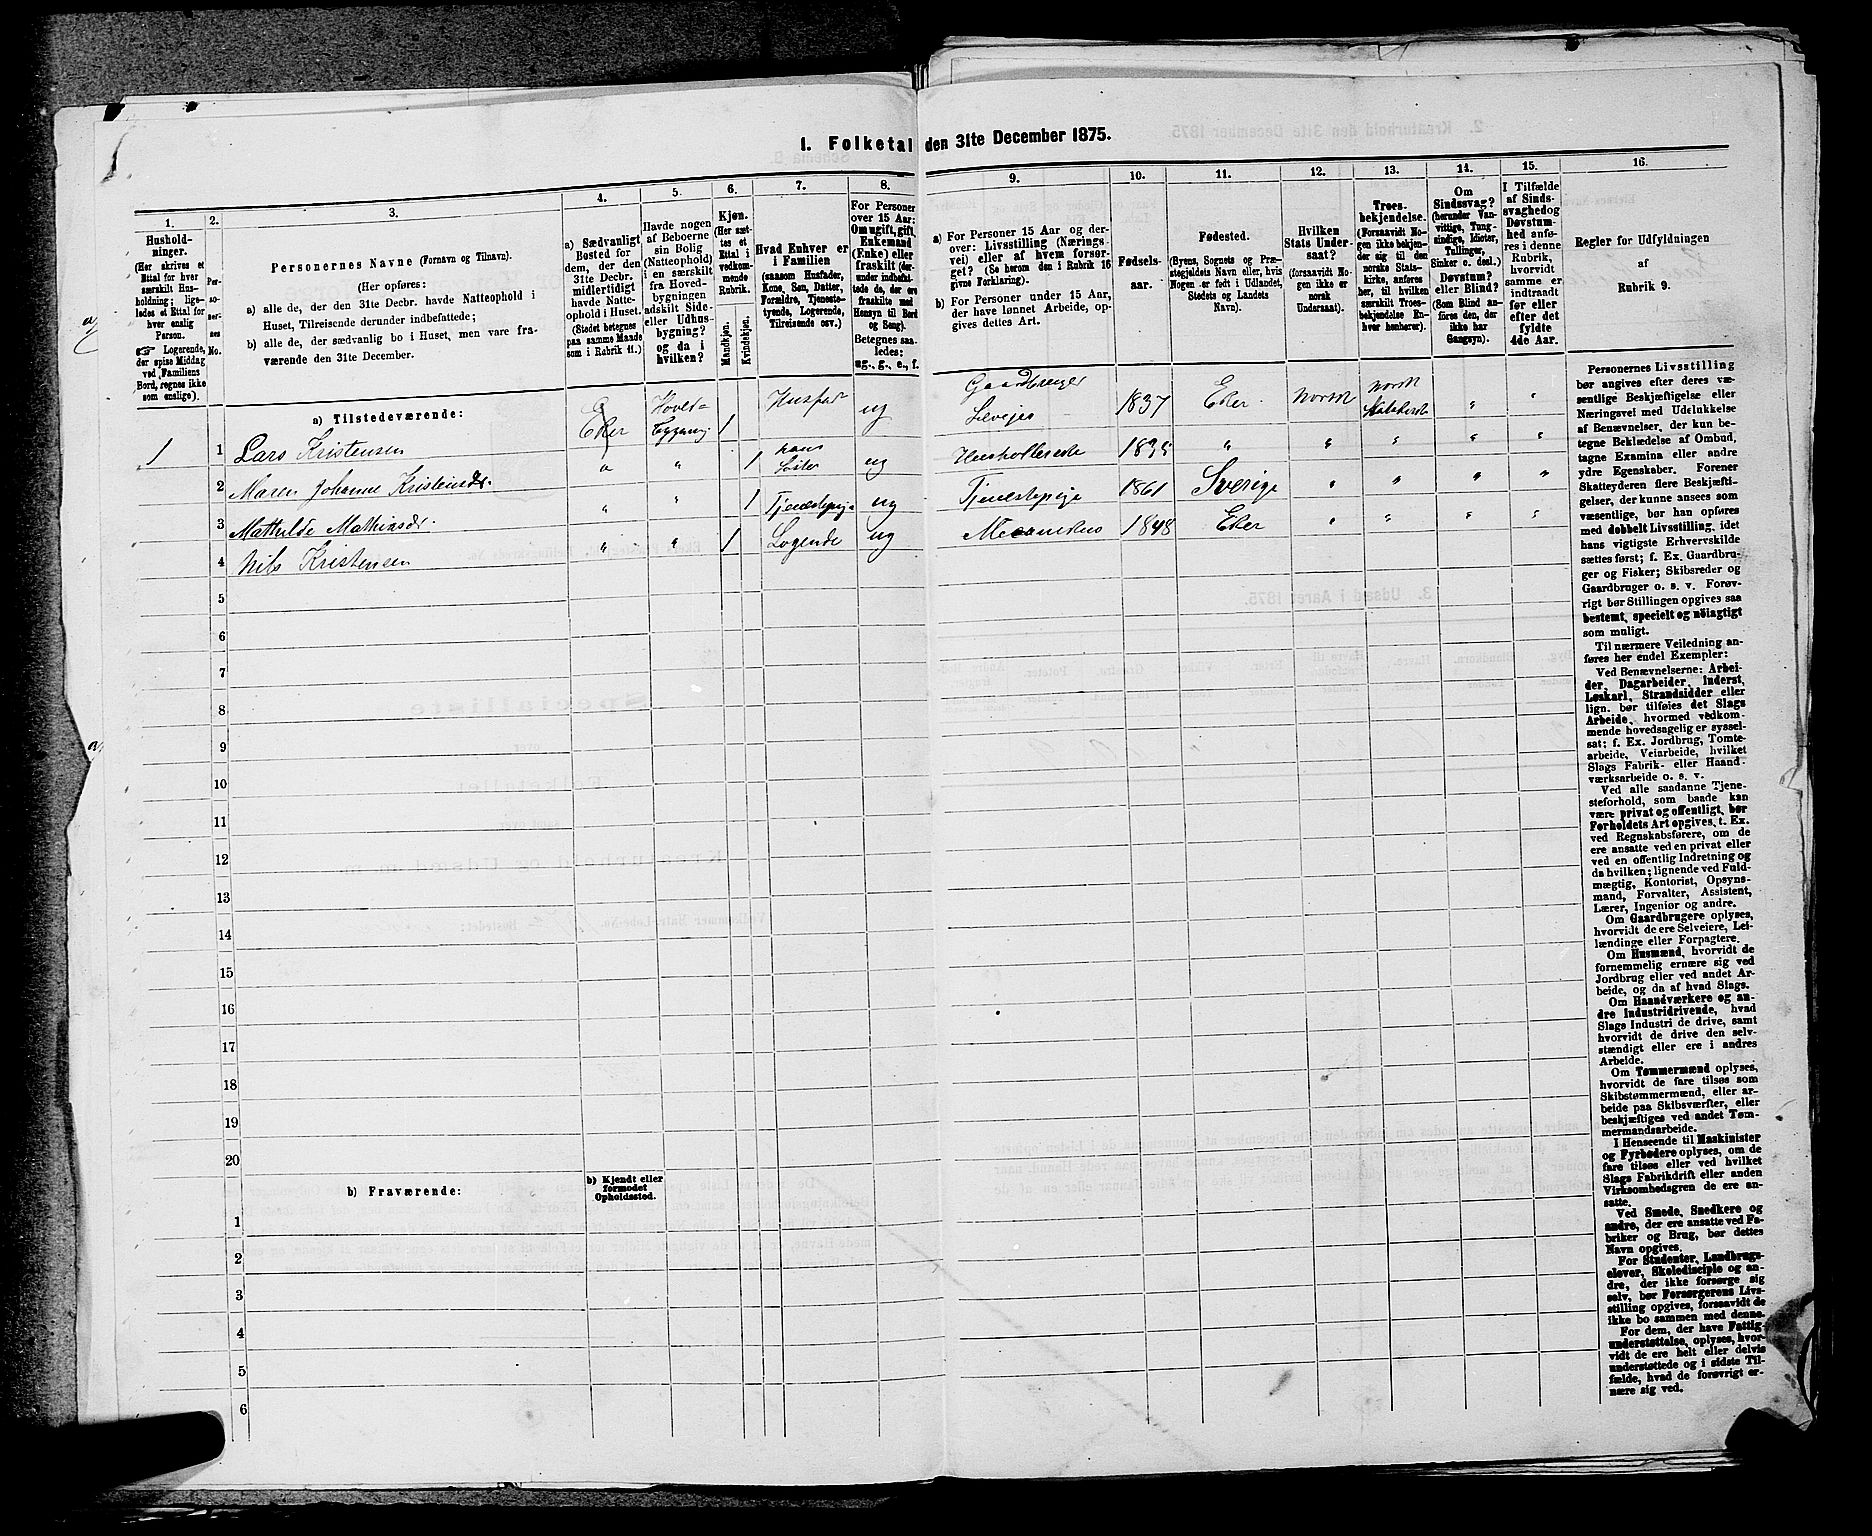 1. Folketal den 31te December 1875.
1.
Hushold-
ninger.
(Her skrives et
Ettal for hver
særskilt Hus-
holdning; lige-
ledes et Ettal for
hver enslig
Person.
☞ Logerende,
der spise Middag
ved Familiens
Bord, regnes ikke
som enslige).
2.
Per-
so-
ner-
nes
No.
3.
Personernes Navne (Fornavn og Tilnavn).
(Her opføres:
a) alle de, der den 31te Decbr. havde Natteophold i
Huset, Tilreisende derunder indbefattede;
b) alle de, der sædvanlig bo i Huset, men vare fra-
værende den 31te December.
4.
a) Sædvanligt
Bosted for
dem, der den
31te Decbr.
midlertidigt
havde Natte-
ophold i Huset.
(Stedet betegnes
paa samme Maade
som i Rubrik 11.)
5.
Havde nogen
af Beboerne
sin Bolig
(Natteophold)
i en særskilt
fra Hoved-
bygningen
adskilt Side-
eller Udhus-
bygning?
og da i
hvilken?
6.
Kjøn.
(Her sæt-
tes et
Ettal i
vedkom-
mende
Rubrik.
Mandkjøn.
Kvindekjøn.
7.
Hvad Enhver er
i Familien
(saasom Husfader,
Kone, Søn, Datter,
Forældre, Tjeneste-
tyende, Logerende,
Tilreisende osv.)
8.
For Personer
over 15 Aar:
Om ugift, gift,
Enkemand
(Enke) eller
fraskilt (der-
under indbefat-
tede de, der ere
fraskilte med
Hensyn til Bord
og Seng).
Betegnes saa-
ledes:
ug., g., e., f.
9.
a) For Personer 15 Aar og der-
over: Livsstilling (Nærings-
vei) eller af hvem forsør-
get? (Se herom den i Rubrik 16
givne Forklaring).
b) For Personer under 15 Aar,
der have lønnet Arbeide, op-
gives dettes Art.
10.
Fødsels-
aar.
11.
Fødested.
(Byens, Sognets og Præ-
stegjeldets Navn eller, hvis
Nogen er født i Udlandet,
Stedets og Landets
Navn).
12.
Hvilken
Stats Under-
saat?
(forsaavidt No-
gen ikke er
norsk
Undersaat).
13.
Troes-
bekjendelse.
(Forsaavidt No-
gen ikke bekjen-
der sig til den
norske Stats-
kirke, anføres
her, til hvilken
særskilt Troes-
bekjendelse En-
hver henhører).
14.
Om
Sindssvag?
(herunder Van-
vittige, Tung-
sindige, Idioter,
Tullinger,
Sinker o. desl.)
Døvstum?
eller Blind?
(Som Blind an-
føres den, der
ikke har
Gangsyn).
15.
I Tilfælde
af Sinds-
svaghed og
Døvstum-
hed anfø-
res i denne
Rubrik,
hvorvidt
samme er
indtraadt
før eller
efter det
fyldte
4de Aar.
16.
Regler for Udfyldningen
af
Rubrik 9.
a) Tilstedeværende:
1 1 Lars Kristensen Eker Hoved=bygning 1 Husfad ug Gaardbruger Selveier 1837 Eker norsk norsk Statskirke " "
2 Maren Johanne Kristensdr. " " 1 hans Søster ug Husholderske 1835 " " " " "
3 Mathilde Mathisdr. " " 1 Tjenestepige ug Tjenestepige 1861 Sverige " " " "
4 Nils Kristensen " " 1 Logende ug Mecanikus 1848 Eker " " " "
5
6
7
8
9
10
11
12
13
14
15
16
17
18
19
20
b) Fraværende:
b) Kjendt eller
formodet
Opholdssted.
1
2
3
4
5
6
Personernes Livsstilling
bør angives efter deres væ-
sentlige Beskjæftigelse eller
Næringsvei med Udelukkelse
af Benævnelser, der kun be-
tegne Beklædelse af Ombud,
tagne Examina eller andre
ydre Egenskaber. Forener
Skatteyderen flere Beskjæfti-
gelser, der kunne ansees som
væsentlige, bør han opføres
med dobbelt Livsstilling, idet
hans vigtigste Erhvervskilde
sættes først; f. Ex. Gaardbru-
ger og Fisker; Skibsreder og
Gaardbruger o. s. v. Forøv-
rigt bør Stillingen opgives saa
bestemt, specielt og nöiagtigt
som muligt.
Til nærmere Veiledning an-
føres her endel Exempler:
Ved Benævnelserne: Arbei-
der, Dagarbeider, Inderst,
Løskarl, Strandsidder eller
lign. bør tilføies det Slags
Arbeide, hvormed vedkom-
mende hovedsagelig er syssel-
sat; f. Ex. Jordbrug, Tomte-
arbeide, Veiarbeide, hvilket
Slags Fabrik- eller Haand-
værksarbeide o. s. v.
Ved alle saadanne Tjene-
steforhold, som baade kan
være privat og offentligt, bør
Forholdets Art opgives, t. Ex.
ved Regnskabsførere, om de
ere ansatte ved en privat eller
ved en offentlig Indretning og
da hvilken; lignende ved Fuld-
mægtig, Kontorist, Opsyns-
mand, Forvalter, Assistent,
Lærer, Ingeniør og andre.
Om Gaardbrugere oplyses,
hvorvidt de ere Selveiere, Lei-
lændinge eller Forpagtere.
Om Husmænd, hvorvidt de
fornemmelig ernære sig ved
Jordbrug eller ved andet Ar-
beide, og da af hvad Slags.
Om Haandværkere og an-
dre industridrivende, hvad
Slags Industri de drive, samt
hvorvidt de drive den selv-
stændigt eller ere i andres
Arbeide.
Om Tømmermænd oplyses,
hvorvidt de fare tilsøs som
Skibstømmermænd, eller ar-
beide paa Skibsværfter, eller
beskjæftiges ved andet Tøm-
mermandsarbeide.
I Henseende til Maskinister
og Fyrbødere oplyses, om de
fare tilsøs eller ved hvilket
Slags Fabrikdrift eller anden
Virksomhedsgren de ere an-
satte.
Ved Smede, Snedkere og
andre, der ere ansatte ved Fa-
briker og Brug, bør dettes
Navn opgives.
For Studenter, Landbrugs-
elever, Skoledisciple og an-
dre, der ikke forsørge sig
selv, bør Forsørgerens Livs-
stilling opgives, forsaavidt de
ikke bo sammen med denne.
For dem, der have Fattig-
understøttelse, oplyses, hvor-
vidt de ere helt eller delvis
understøttede og i sidste Til-
fælde, hvad de forøvrigt er-
nære sig ved.